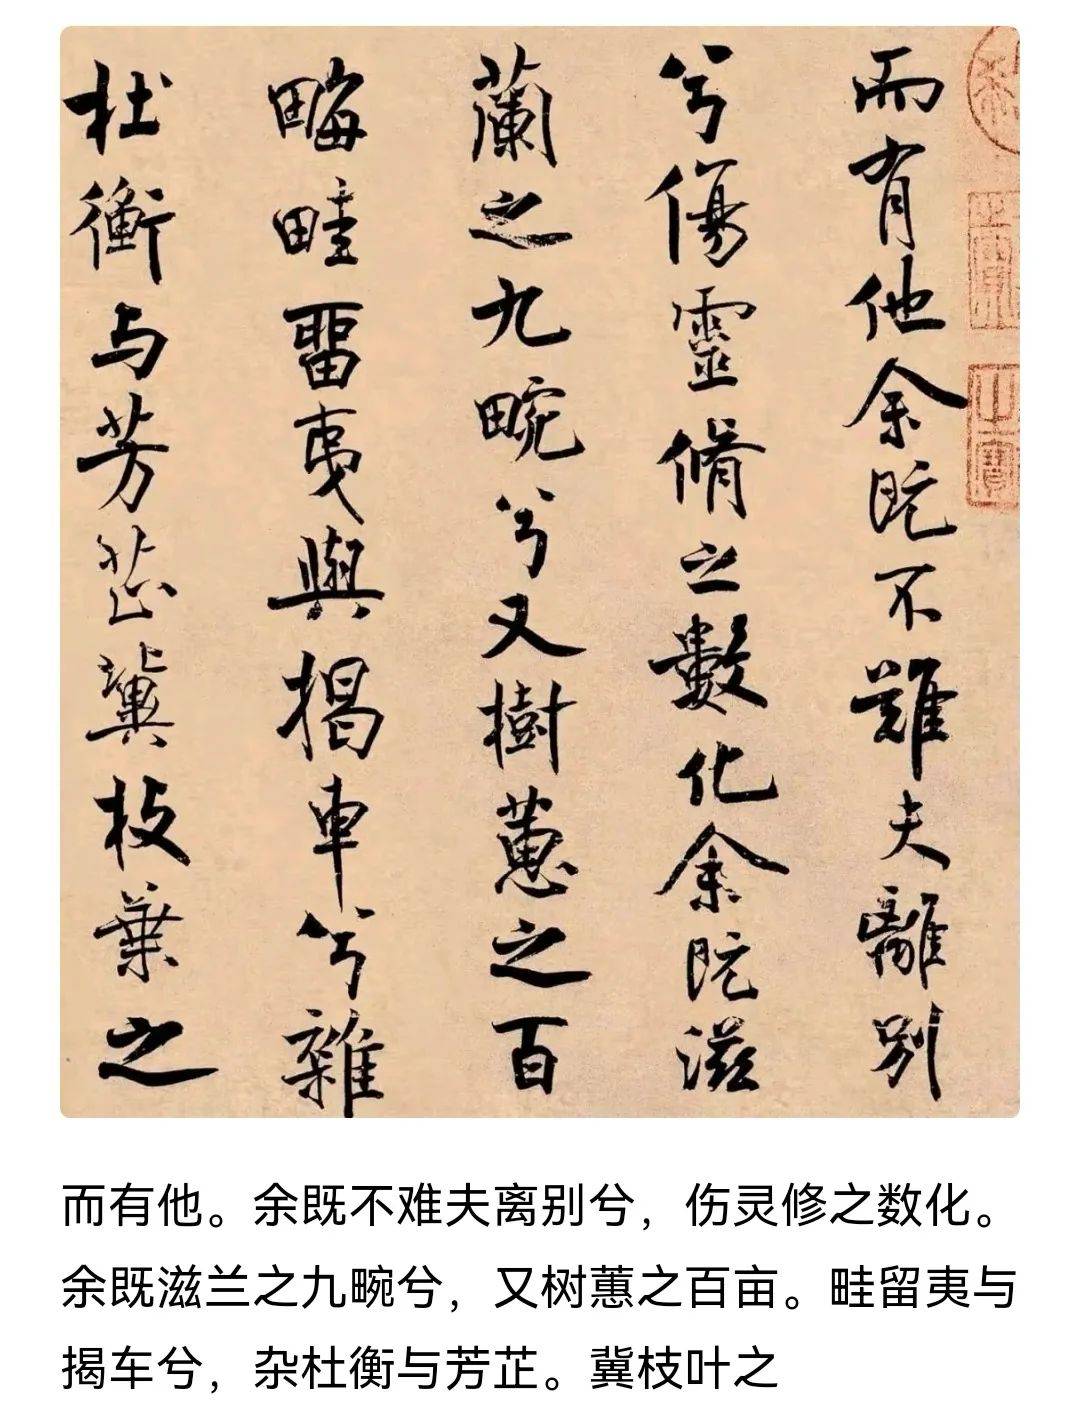 而有他余既不難夫離別
兮傷靈脩之數化余既滋
蘭之九畹兮又樹蕙之百
畮畦畱夷與揭車兮雜
杜衡与芳芷冀枝葉之
而有他。余既不难夫离别兮，伤灵修之数化。
余既滋兰之九畹兮，又树蕙之百亩。畦留夷与
揭车兮，杂杜衡与芳芷。冀枝叶之